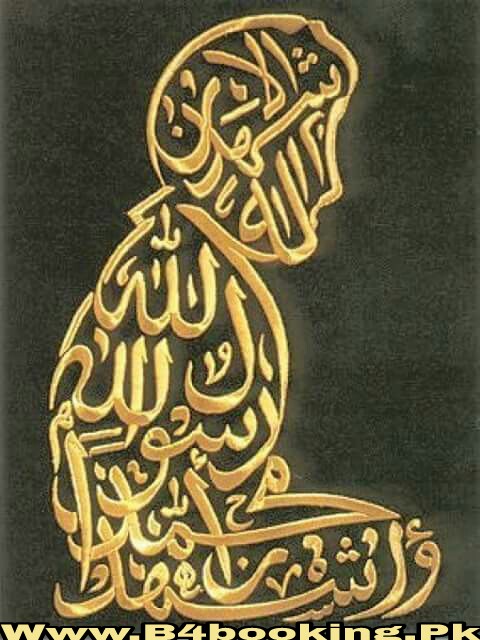 أشهد أن لا
إله إلا
الله
وأشهد أن محمدا
رسول الله
Www.B4booking.Pk